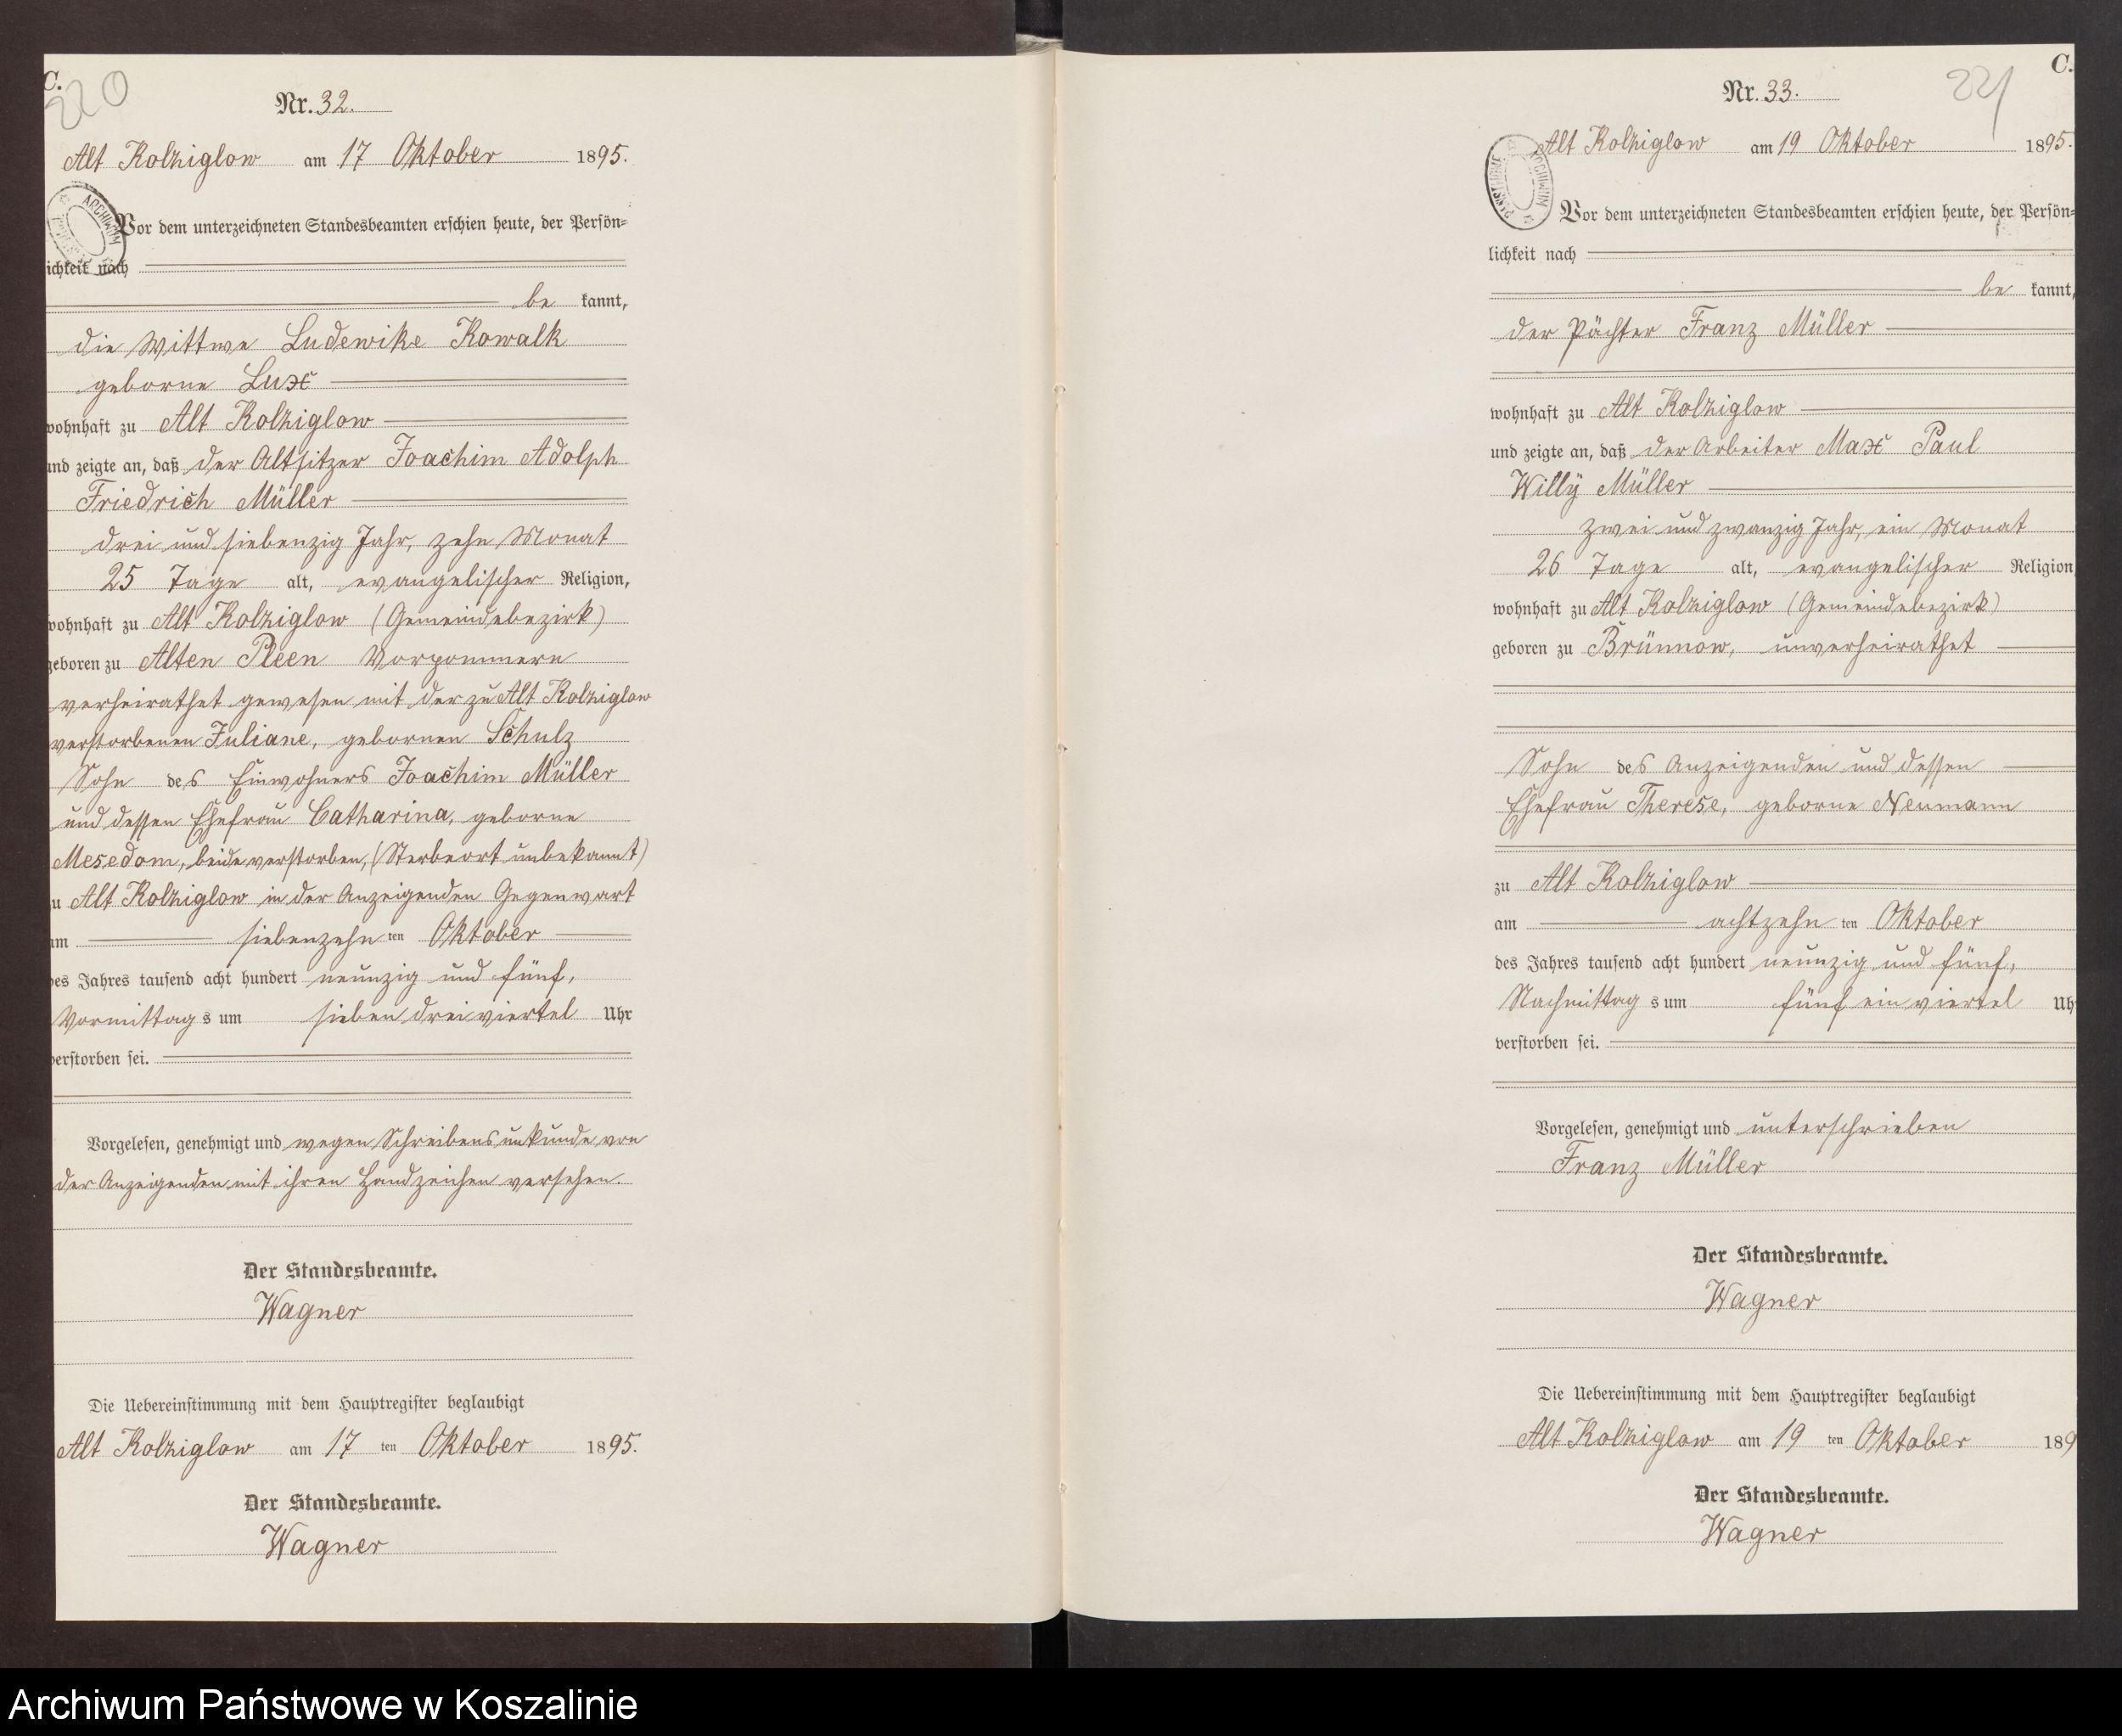 C.
220
Nr. 32.
Alt Kolziglow am 17 Oktober 1895.
Vor dem unterzeichneten Standesbeamten erschien heute, der Persön-
ichkeit nach
be kannt,
die Wittwe Ludewike Kowalk
geborne Lux
wohnhaft zu Alt Kolziglow
und zeigte an, daß der Altsitzer Joachim Adolph
Friedrich Müller
drei und siebenzig Jahr, zehn Monat
25 Tage alt, evangelischer Religion,
wohnhaft zu Alt Kolziglow (Gemeindebezirk)
geboren zu Alten Pleen Vorpommern
verheirathet gewesen mit der zu Alt Kolziglow
verstorbenen Juliane, gebornen Schulz
Sohn des Einwohners Joachim Müller
und dessen Ehefrau Catharina, geborne
Mesedom, beide verstorben, (Sterbeort unbekannt)
u Alt Kolziglow in der Anzeigenden Gegenwart
am siebenzehn ten Oktober
des Jahres tausend acht hundert neunzig und fünf,
Vormittag s um sieben dreiviertel Uhr
verstorben sei.
Vorgelesen, genehmigt und wegen Schreibensunkunde von
der Anzeigenden mit ihren Handzeichen versehen.
Der Standesbeamte.
Wagner
Die Uebereinstimmung mit dem Hauptregister beglaubigt
Alt Kolziglow am 17 ten Oktober 1895.
Der Standesbeamte.
Wagner
C.
221
Nr. 33.
Alt Kolziglow am 19 Oktober 1895.
ARCHIWUM
Vor dem unterzeichneten Standesbeamten erschien heute, der Persön-
lichkeit nach
be kannt,
der Pächter Franz Müller
wohnhaft zu Alt Kolziglow
und zeigte an, daß der Arbeiter Max Paul
Willy Müller
zwei und zwanzig Jahr, ein Monat
26 Tage alt, evangelischer Religion
wohnhaft zu Alt Kolziglow (Gemeindebezirk)
geboren zu Brünnow, unverheirathet
Sohn des Anzeigenden und dessen
Ehefrau Therese, geborne Neumann
zu Alt Kolziglow
am achtzehn ten Oktober
des Jahres tausend acht hundert neunzig und fünf,
Nachmittag s um fünf ein viertel Uh
verstorben sei.
Vorgelesen, genehmigt und unterschrieben
Franz Müller
Der Standesbeamte.
Wagner
Die Uebereinstimmung mit dem Hauptregister beglaubigt
Alt Kolziglow am 19 ten Oktober 189
Der Standesbeamte.
Wagner
Archiwum Państwowe w Koszalinie